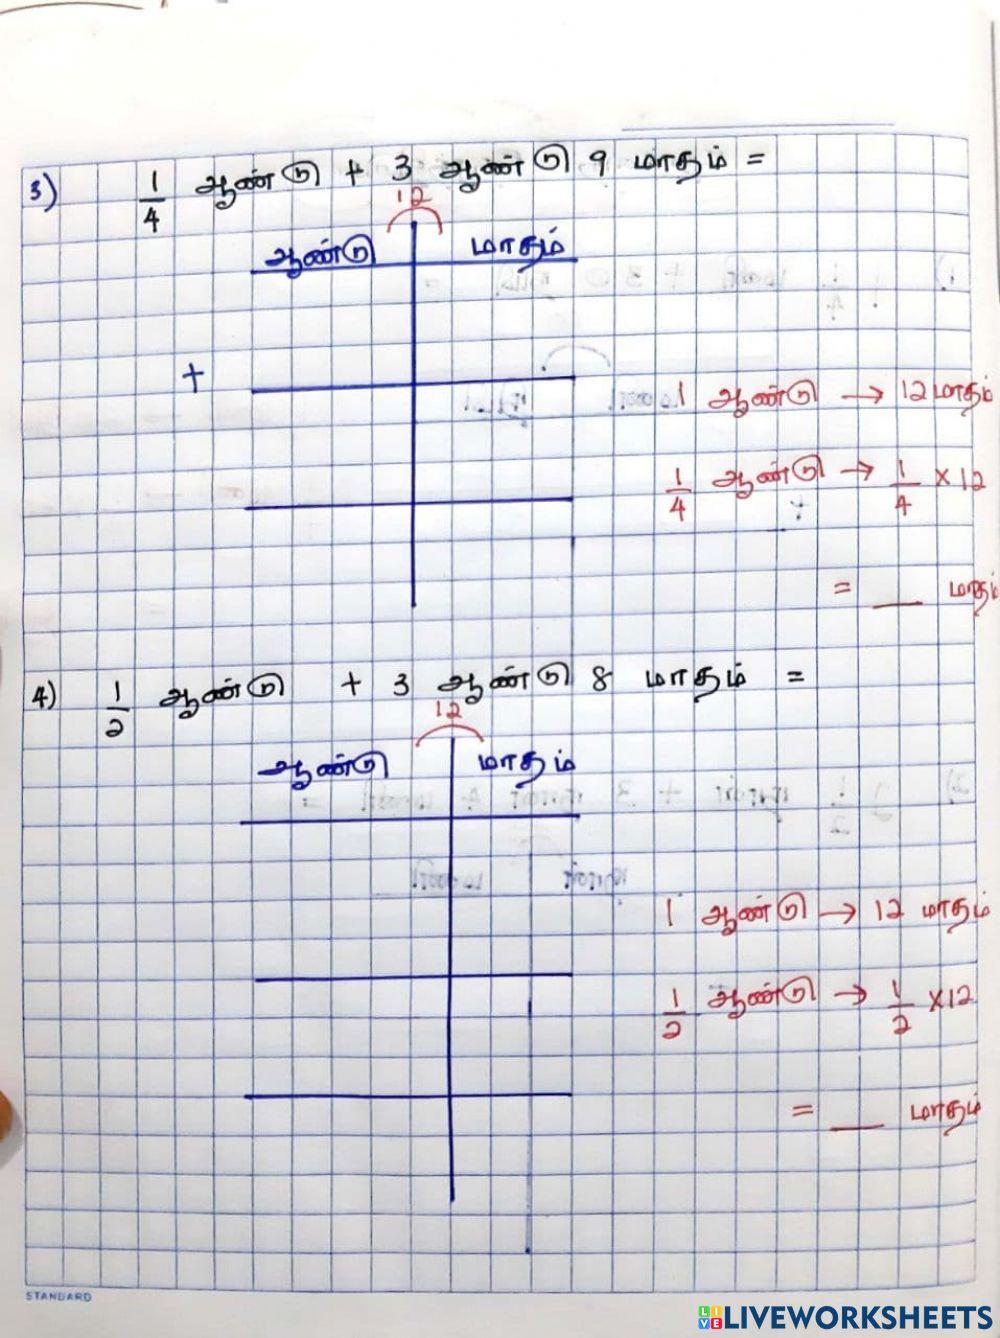 3) 1/4 ஆண்டு + 3 ஆண்டு 9 மாதம் =
12
ஆண்டு மாதம்
+
1 ஆண்டு → 12 மாதம்
1/4 ஆண்டு → 1/4 × 12
= __ மாதம்
4) 1/2 ஆண்டு + 3 ஆண்டு 8 மாதம் =
12
ஆண்டு மாதம்
1 ஆண்டு → 12 மாதம்
1/2 ஆண்டு → 1/2 × 12
= __ மாதம்
STANDARD
LIVEWORKSHEETS